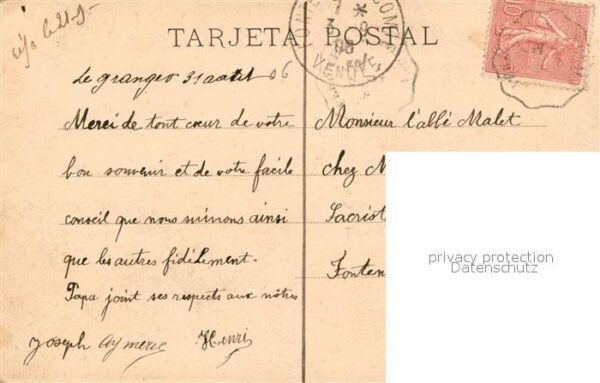 TARJETA POSTAL
31 août 06
Merci de tout cœur de votre
bon souvenir et de votre facile
conseil que nous suivrons ainsi
que les autres fidèlement.
Papa joint ses respects aux nôtres
Joseph Aymeric Henri
Monsieur l'abbé Malet
chez M
Sacrist
Fonten
privacy protection
Datenschutz